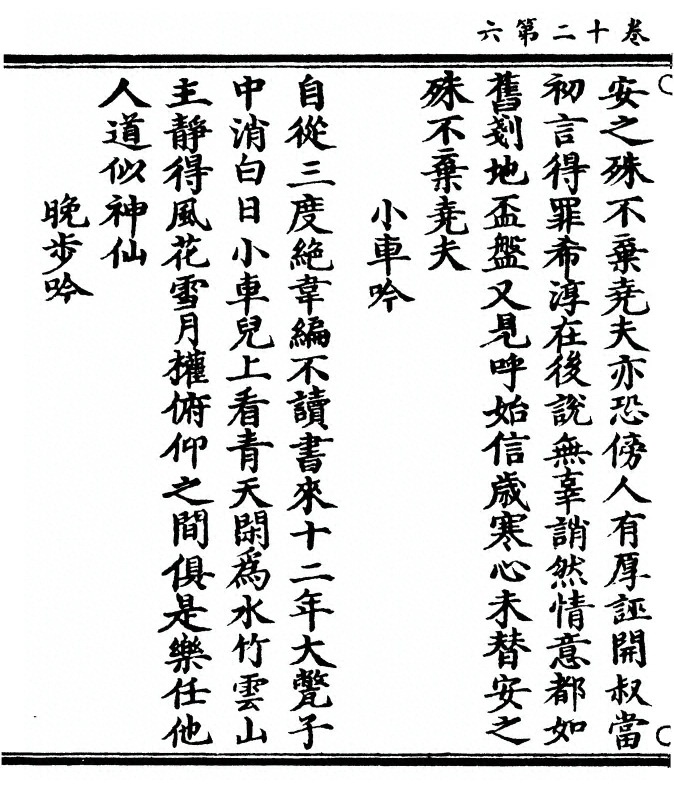 卷十二第六
安之殊不棄堯夫亦恐傍人有厚誣開叔當
初言得罪希淳在後說無辜誚然情意都如
舊剗地盃盤又見呼始信歲寒心未替安之
殊不棄堯夫
小車吟
自從三度絶韋編不讀書來十二年大甕子
中消白日小車兒上看青天閑爲水竹雲山
主靜得風花雪月權俯仰之間俱是樂任他
人道似神仙
晚步吟